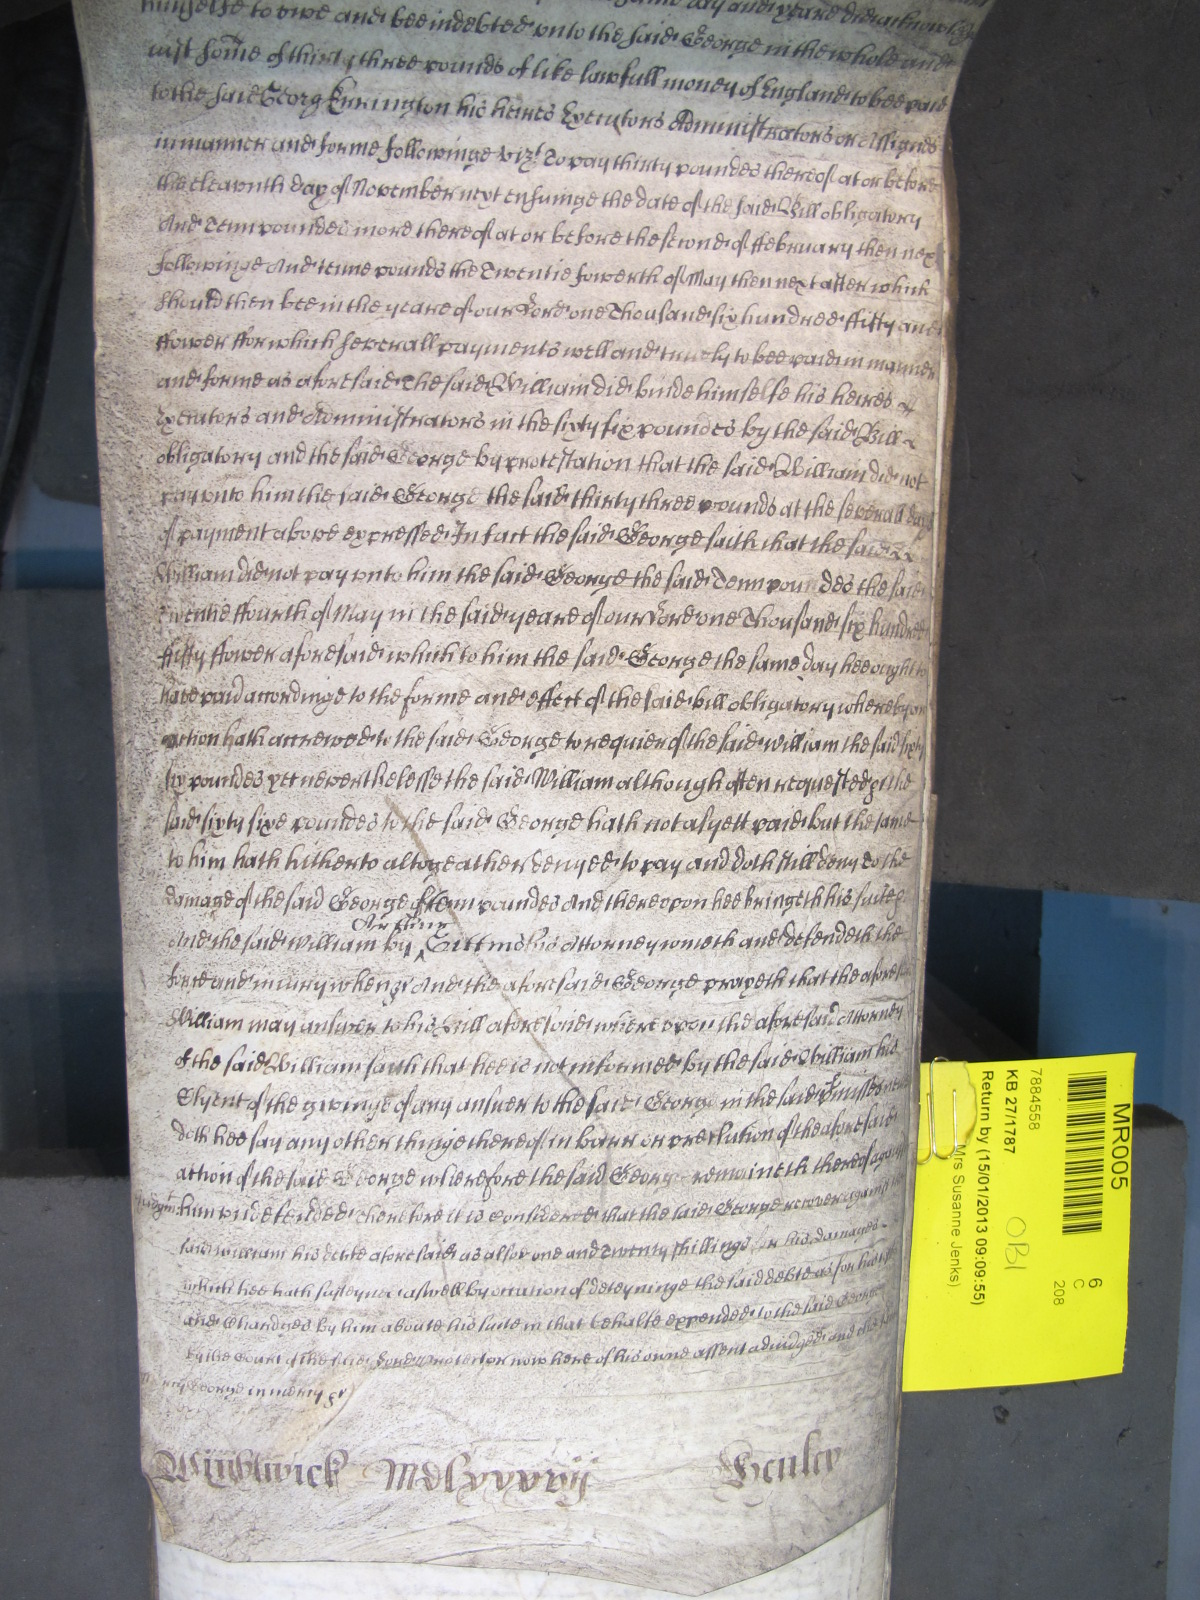 himselfe to owe and bee indebted unto the said George in the whole and
iust some of thirty three pounds of like lawfull money of England to bee paid
to the said Georg Errington his heires Executors Administrators or Assignes
in manner and forme followinge vizt To pay thirty poundes thereof at or before
the eleaventh day of November next ensuinge the date of the said Bill obligatory
And Tenn poundes more thereof at or before the second of ffebruary then next
followinge And tenne pounds the Twentie fowerth of May then next after which
should then bee in the yeare of our Lord one Thousand six hundred ffifty and
ffower ffor which severall payments well and truely to bee paid in manner
and forme as aforesaid The said William did binde himselfe his heires
Executors and Administrators in the sixty six poundes by the said Bill
obligatory and the said George by protestation that the said William did not
pay unto him the said George the said thirty three pounds at the severall days
of payment above expressed In fact the said George saith that the said
William did not pay unto him the said George the said Tenn poundes the said
twentie ffourth of May in the said yeare of our Lord one Thousand six hundred
ffifty ffower aforesaid which to him the said George the same day hee ought to
have paid accordinge to the forme and effect of the said bill obligatory whereby an
action hath accrewed to the said George to requier of the said William the said sixty
six poundes yet neverthelesse the said William although often requested the
said sixty sixe poundes to the said George hath not as yett paid but the same
to him hath hitherto altogeather denyed to pay and doth still deny to the
damage of the said George of tenn poundes And thereupon hee bringeth his suite
Arthur
And the said William by ^ Gittins his Attorney cometh and defendeth the
force and iniury when And the aforesaid George prayeth that the aforesd
William may answer to his Bill aforesaid whereupon the aforesaid Attorney
of the said William saith that hee is not informed by the said William his
Clyent of the givinge of any answer to the said George in the said Premisses nor
doth hee say any other thinge thereof in barr or preclution of the aforesaid
action of the said George wherefore the said George remaineth thereof against
him undefended Therefore it is Considered that the said George recover against the
said William his debte aforesaid as also one and Twenty shillings for his damages
which hee hath susteyned aswell by occasion of deteyninge the said debte as for his
and Chardges by him aboute his suite in that behalfe expended to the said George
by the Court of the said Lord Protector now here of his owne assent adiudged and the
George in mercy &c
Wightwick Mdlxxxvij Henley
MR005
6
C
208
7884558
KB 27/1787
OB1
Return by (15/01/2013 09:09:55)
Mrs Susanne Jenks)